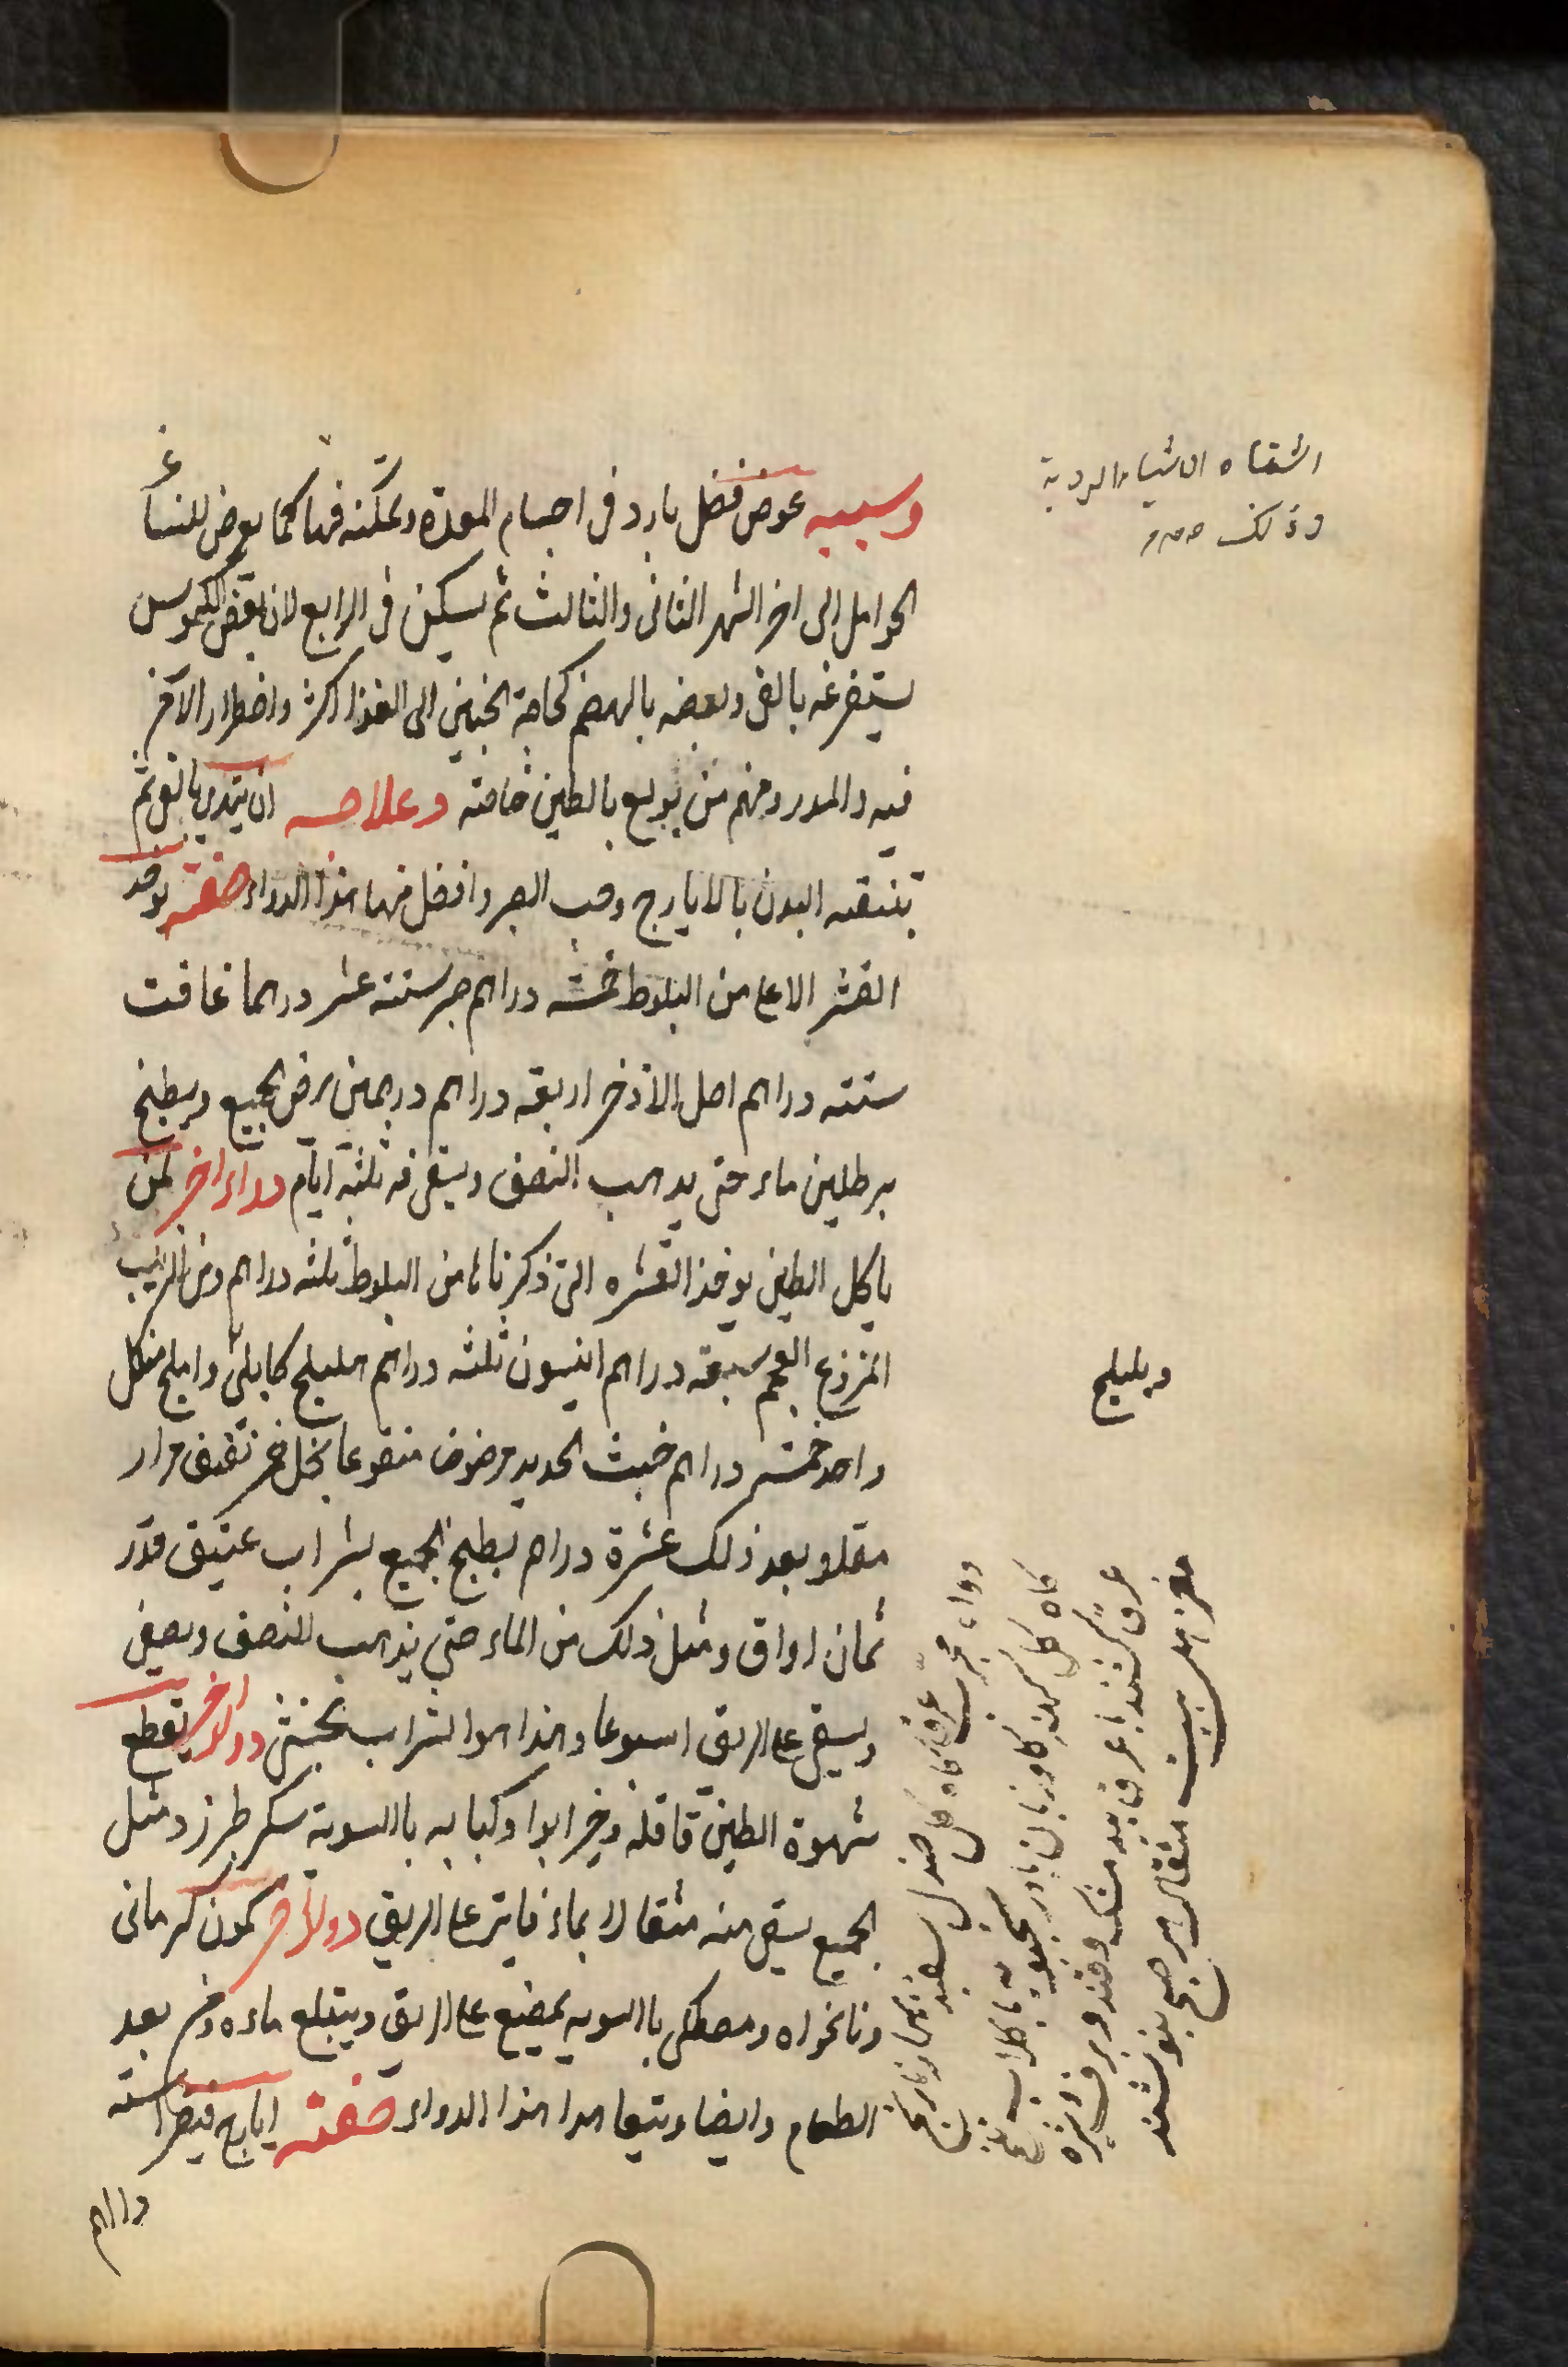 اشتهاء الاشياء الردية
وذلك
وسببه عوض فضل بارد فى اجسام المعدة وتمكنه فيها كما يعرض للنساء
الحوامل الى اخر الشهر الثانى والثالث ثم يسكن فى الرابع لان بعض الكيموس
يستفرغه بالقى وبعضه بالهضم لحاجة الجنين الى الغذا اكثر واضطرار الآخر
فيه والمدر ومنهم من يولع بالطين خاصته وعلاجه ان يبتدى بالقى ثم
بتنقيه البدن بالايارج وحب الصبر وافضل منهما هذا الدواء صفته يوخذ
القشر الاعلى من البلوط خمسه دراهم صبر ستته عشر درهما غافت
ستته دراهم اصل الاذخر اربعة دراهم درهمين يرض الجميع ويطبخ
برطلين ماء حتى يذهب النصف ويسقى منه ثلثة ايام دواء اخر لمن
ياكل الطين يوخذ القشره التى ذكرناها من البلوط ثلثه دراهم ومن الزبيب
المنزوع العجم سبعة دراهم انيسون ثلثه دراهم هليلج كابلى واملج من كل
وبليلج
واحد خمسه دراهم خبث الحديد مرضوض منقوعا بخل خمر نقيف مرار
مقلو بعد ذلك عشرة دراهم يطبخ الجميع بشراب عتيق قدر
ثمان اواق ومثل ذلك من الماء حتى يذهب النصف ويصفى
ويسقى على الريق اسبوعا وهذا هو الشراب الخبثى دواء اخر يقطع
شهوة الطين قاقله وخير ابوا وكبابه بالسوية سكر طبرزد مثل
الجميع يسقى منه مثقالا بماء فاتر على الريق دواء اخر كمون كرمانى
ونانخواه ومصطكى بالسويه يمضغ على الريق ويبتلع ماءه وخر بعد
الطعام وايضا ويتعاهدا هذا الدواء صفته ايارج فيقرا ستة
دراهم
دواء مجرب عرق كاه كل صندل سفيد
كاه كل كاوزبان بادرنجبويه با كلاب
عرق كشند با عرق بيد مشك وقند وبرف وغيره
مثقال هر صبح بنوشند